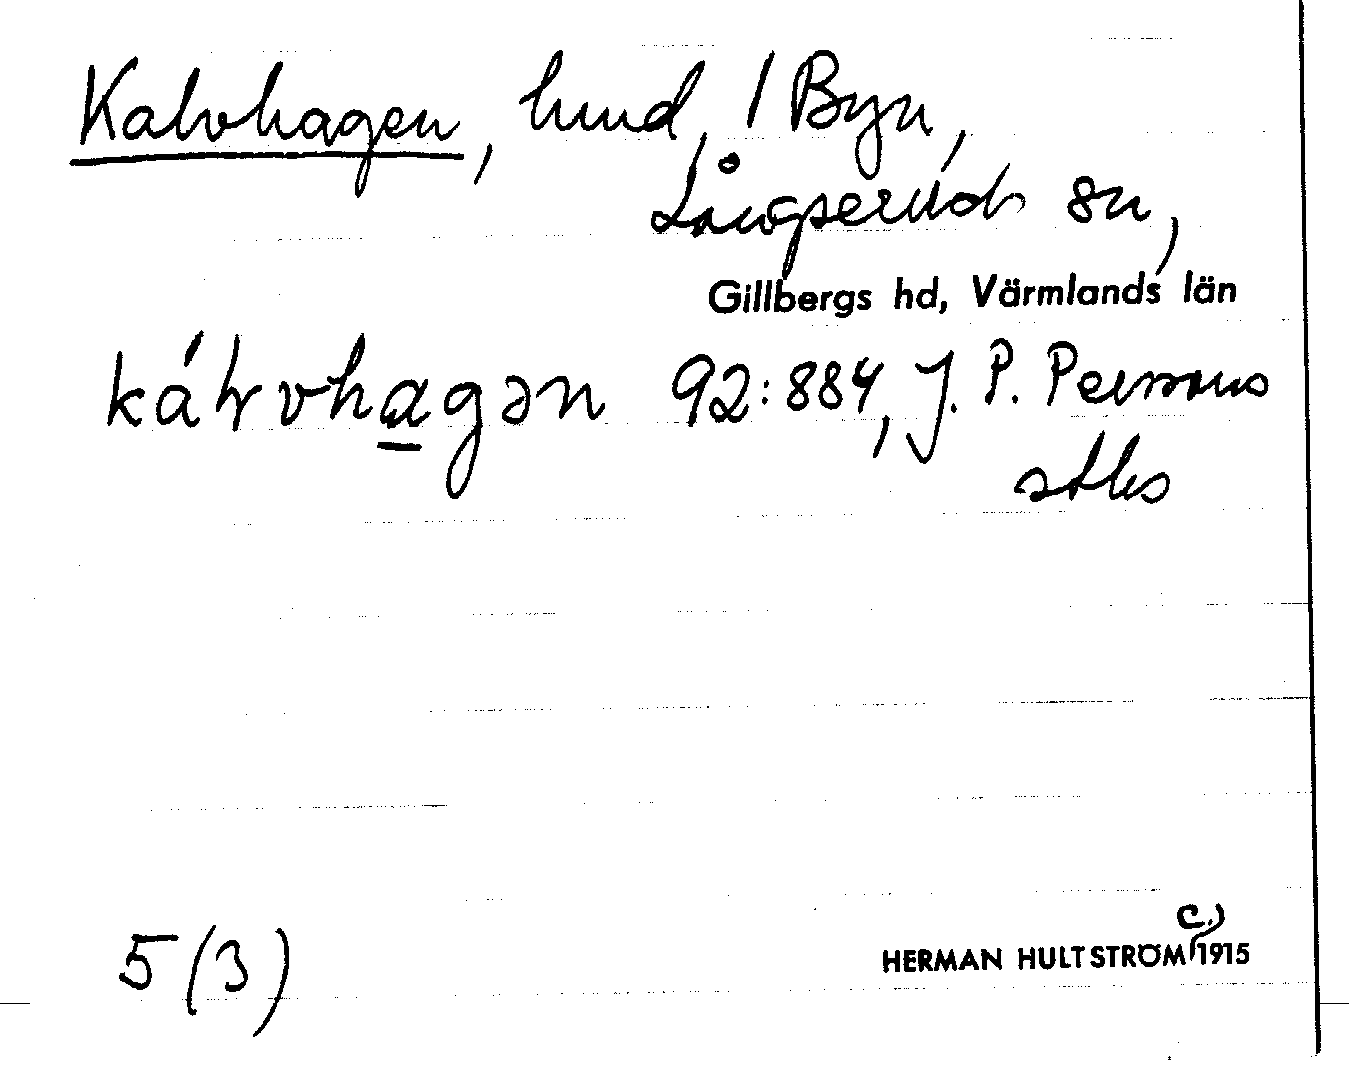 Kalvhagen, lund, / Byn,
Långseruds sn,
Gillbergs hd, Värmlands län
kálrvhagən 92:884, J. P. Perssons
stks
5(3)
C.)
HERMAN HULTSTRÖM 1915